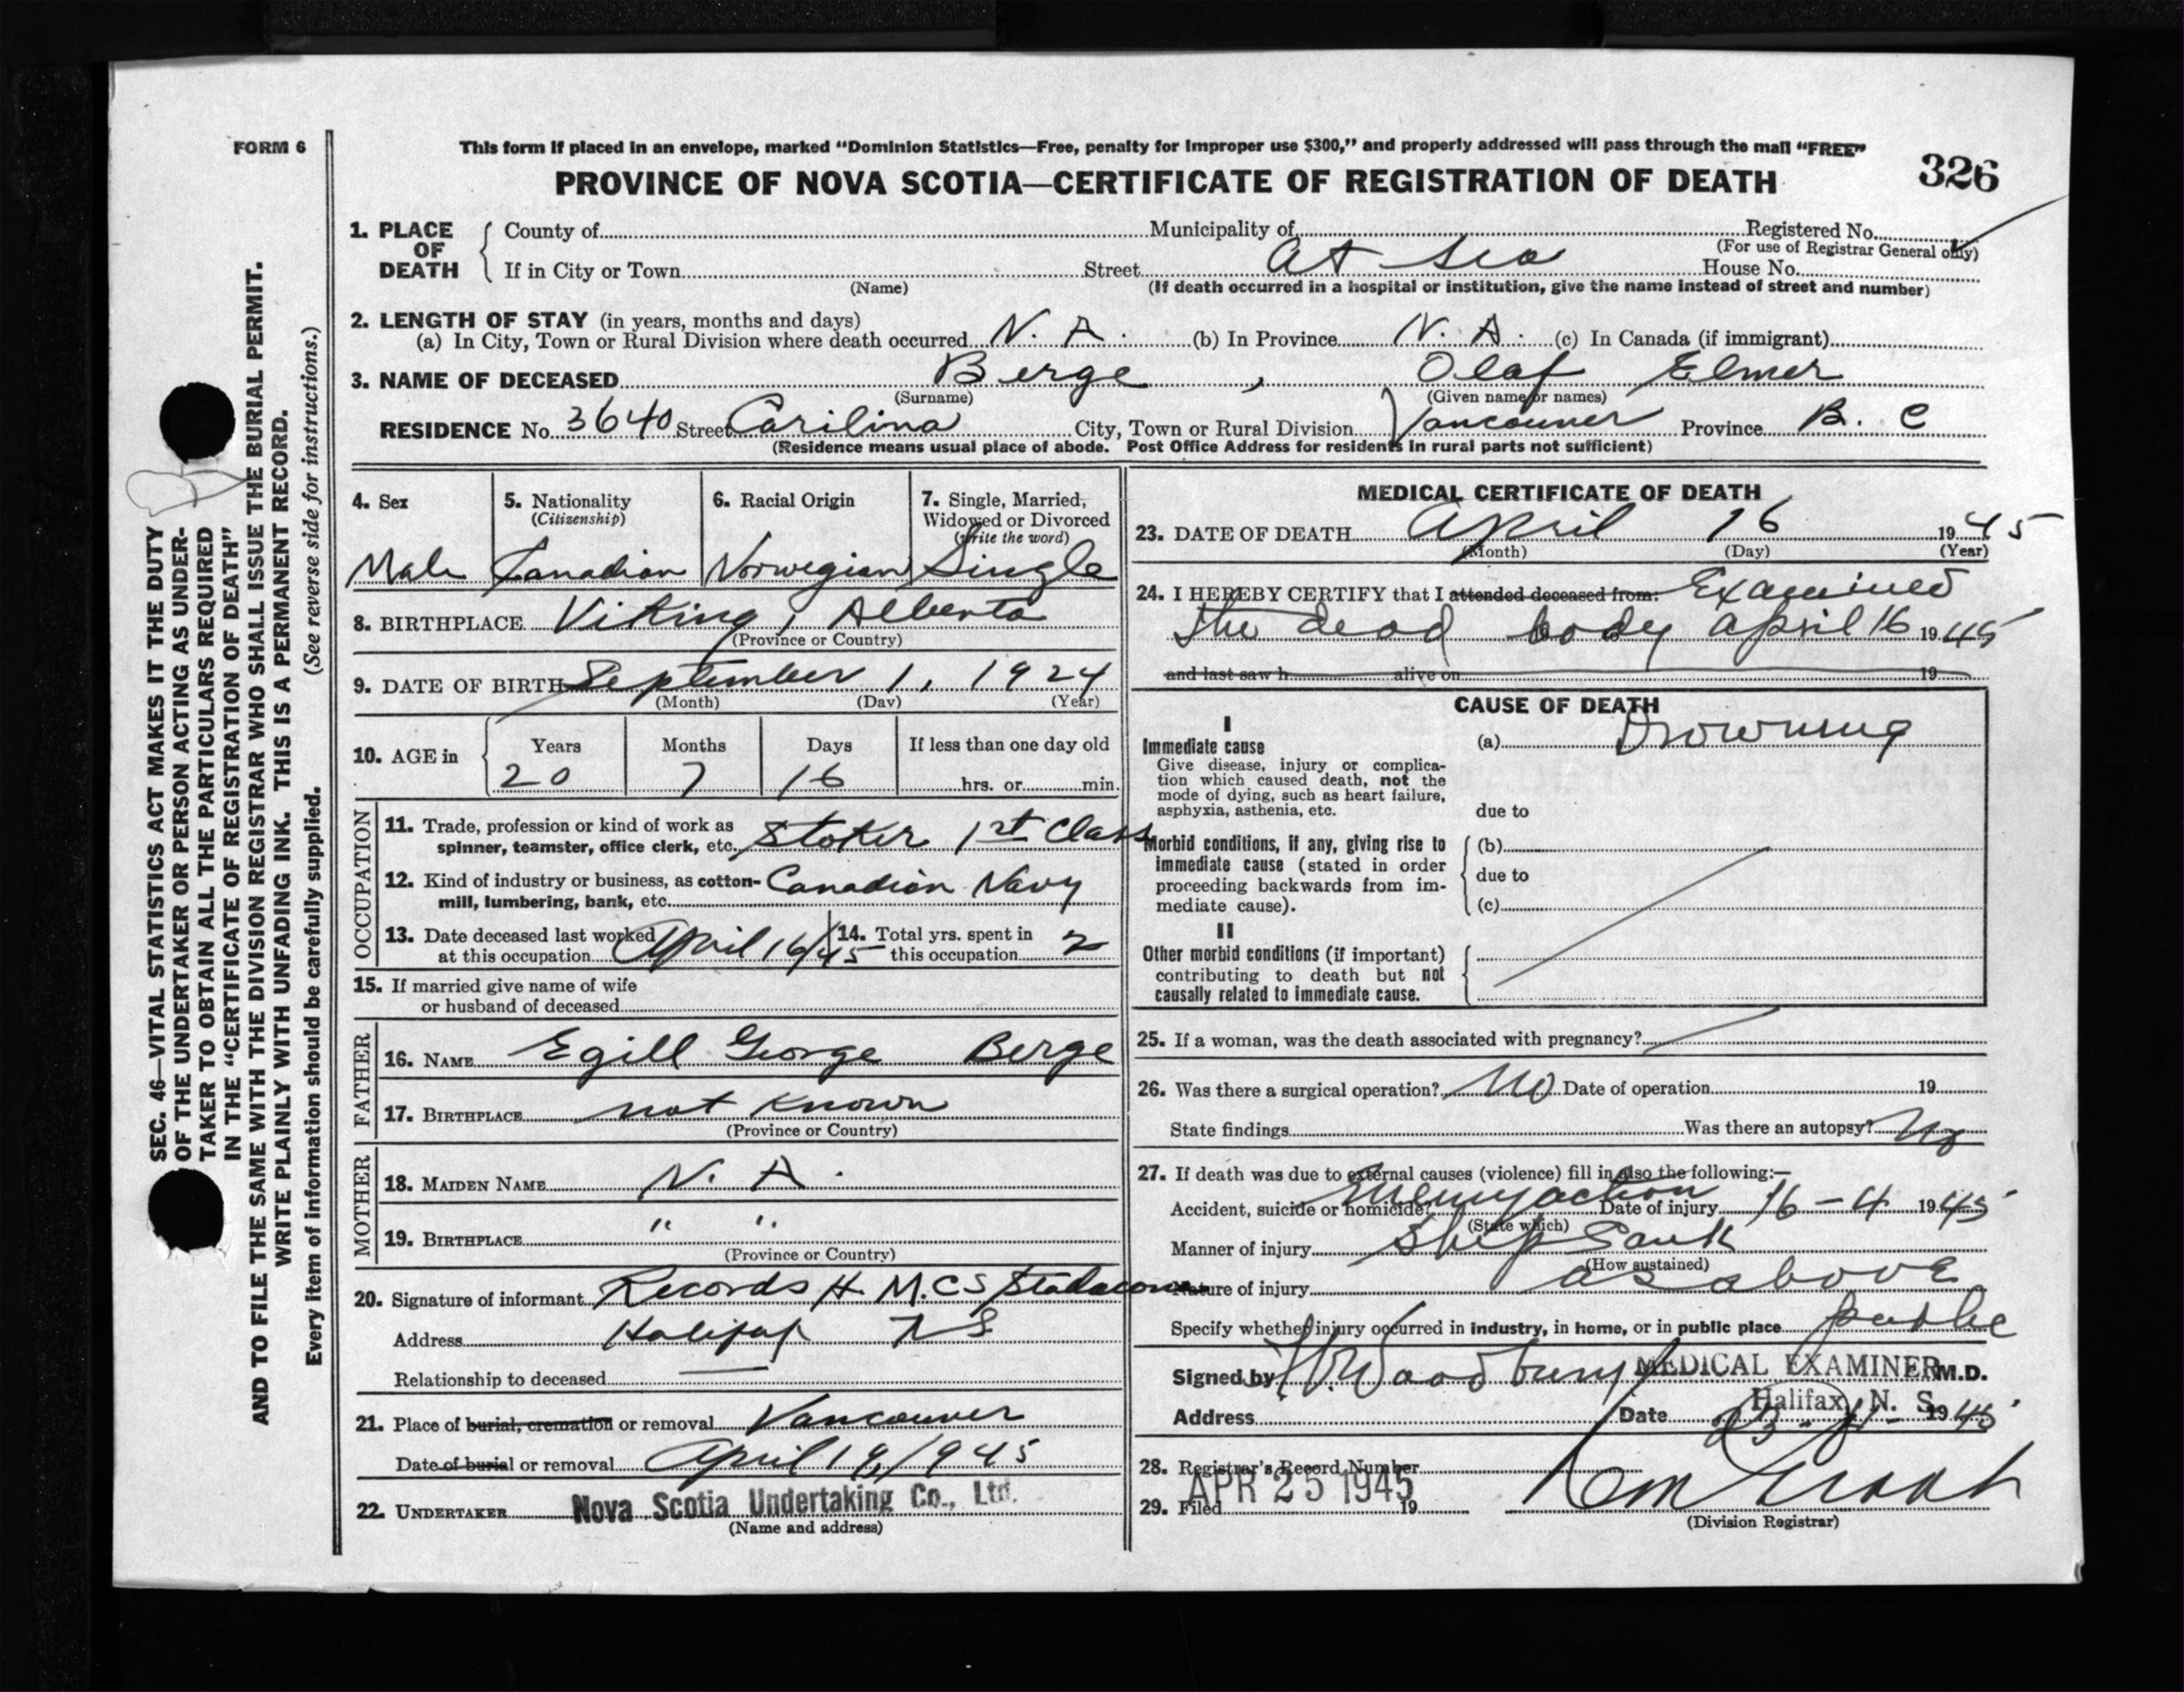 FORM 6
This form if placed in an envelope, marked "Dominion Statistics—Free, penalty for improper use $300," and properly addressed will pass through the mail "FREE"
PROVINCE OF NOVA SCOTIA—CERTIFICATE OF REGISTRATION OF DEATH
326
SEC. 46—VITAL STATISTICS ACT MAKES IT THE DUTY
OF THE UNDERTAKER OR PERSON ACTING AS UNDER-
TAKER TO OBTAIN ALL THE PARTICULARS REQUIRED
IN THE "CERTIFICATE OF REGISTRATION OF DEATH"
AND TO FILE THE SAME WITH THE DIVISION REGISTRAR WHO SHALL ISSUE THE BURIAL PERMIT.
WRITE PLAINLY WITH UNFADING INK. THIS IS A PERMANENT RECORD.
Every item of information should be carefully supplied. (See reverse side for instructions.)
1. PLACE OF DEATH
County of Municipality of Registered No.
(For use of Registrar General only)
If in City or Town Street At Sea House No.
(Name) (If death occurred in a hospital or institution, give the name instead of street and number)
2. LENGTH OF STAY (in years, months and days)
(a) In City, Town or Rural Division where death occurred N. A. (b) In Province N. A. (c) In Canada (if immigrant)
3. NAME OF DECEASED Berge, Olaf Elmer
(Surname) (Given name or names)
RESIDENCE No. 3640 Street Carilina City, Town or Rural Division Vancouver Province B. C
(Residence means usual place of abode. Post Office Address for residents in rural parts not sufficient)
4. Sex
Male
5. Nationality
(Citizenship)
Canadian
6. Racial Origin
Norwegian
7. Single, Married,
Widowed or Divorced
(write the word)
Single
8. BIRTHPLACE Viking, Alberta
(Province or Country)
9. DATE OF BIRTH September 1, 1924
(Month) (Day) (Year)
10. AGE in
Years Months Days If less than one day old
20 7 16 hrs. or min.
OCCUPATION
11. Trade, profession or kind of work as
spinner, teamster, office clerk, etc. Stoker 1st Class
12. Kind of industry or business, as cotton-
mill, lumbering, bank, etc. Canadian Navy
13. Date deceased last worked
at this occupation April 16/45
14. Total yrs. spent in
this occupation 2
15. If married give name of wife
or husband of deceased
FATHER
16. NAME Egill George Berge
17. BIRTHPLACE not known
(Province or Country)
MOTHER
18. MAIDEN NAME N. A.
19. BIRTHPLACE " "
(Province or Country)
20. Signature of informant Records H.M.C.S Stadacona
Address Halifax N S
Relationship to deceased —
21. Place of burial, cremation or removal Vancouver
Date of burial or removal April 19, 1945
22. UNDERTAKER Nova Scotia Undertaking Co., Ltd.
(Name and address)
MEDICAL CERTIFICATE OF DEATH
23. DATE OF DEATH April 16 1945
(Month) (Day) (Year)
24. I HEREBY CERTIFY that I attended deceased from: Examined
the dead body april 16 1945
and last saw h alive on 19
CAUSE OF DEATH
I
Immediate cause
Give disease, injury or complica-
tion which caused death, not the
mode of dying, such as heart failure,
asphyxia, asthenia, etc.
(a) Drowning
due to
Morbid conditions, if any, giving rise to
immediate cause (stated in order
proceeding backwards from im-
mediate cause).
(b)
due to
(c)
II
Other morbid conditions (if important)
contributing to death but not
causally related to immediate cause.
25. If a woman, was the death associated with pregnancy?
26. Was there a surgical operation? No Date of operation 19
State findings Was there an autopsy? No
27. If death was due to external causes (violence) fill in also the following:—
Accident, suicide or homicide? Enemy action Date of injury 16-4 1945
(State which)
Manner of injury Ship Sank
(How sustained)
Nature of injury as above
Specify whether injury occurred in industry, in home, or in public place public
Signed by Woodbury MEDICAL EXAMINER M.D.
Halifax, N. S.
Address Date 23-4- 1945
28. Registrar's Record Number
29. Filed APR 25 1945 19
(Division Registrar)